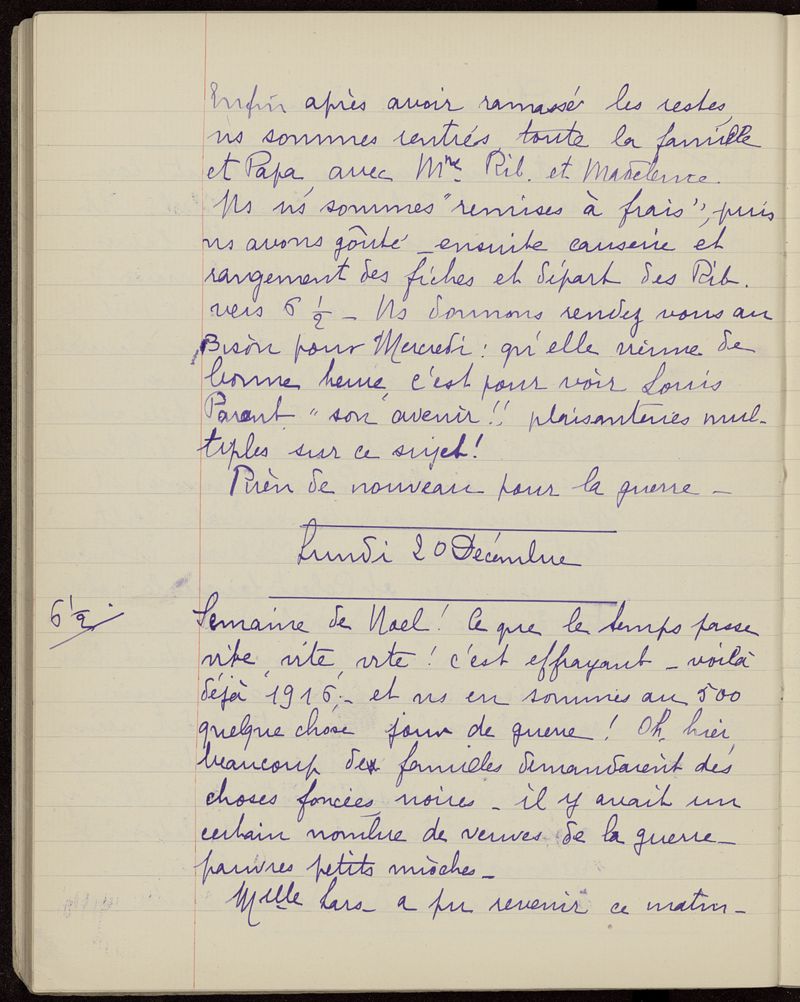 Enfin après avoir ramassé les restes,
ns sommes rentrés, toute la famille
et Papa, avec Mme Rib. et Madeleine.
Ns ns sommes "remises à frais", puis
ns avons goûté - ensuite causerie et
rangement des fiches et départ des Rib.
vers 6 1/2 - Ns donnons rendez vous au
Bison pour Mercredi : qu'elle vienne de
bonne heure, c'est pour voir Louis
Parent "son avenir!! plaisanteries mul-
tiples sur ce sujet!
Rien de nouveau pour la guerre -
Lundi 20 Décembre
6 1/2
Semaine de Noel! Ce que le temps passe
vite, vite, vite! c'est effrayant - voilà
déjà 1916 - et ns en sommes au 500
quelque chose jour de guerre! Oh, hier,
beaucoup de familles demandaient des
choses foncées, noires - il y avait un
certain nombre de veuves de la guerre -
pauvres petits mioches -
Melle Lars - a pu revenir ce matin -